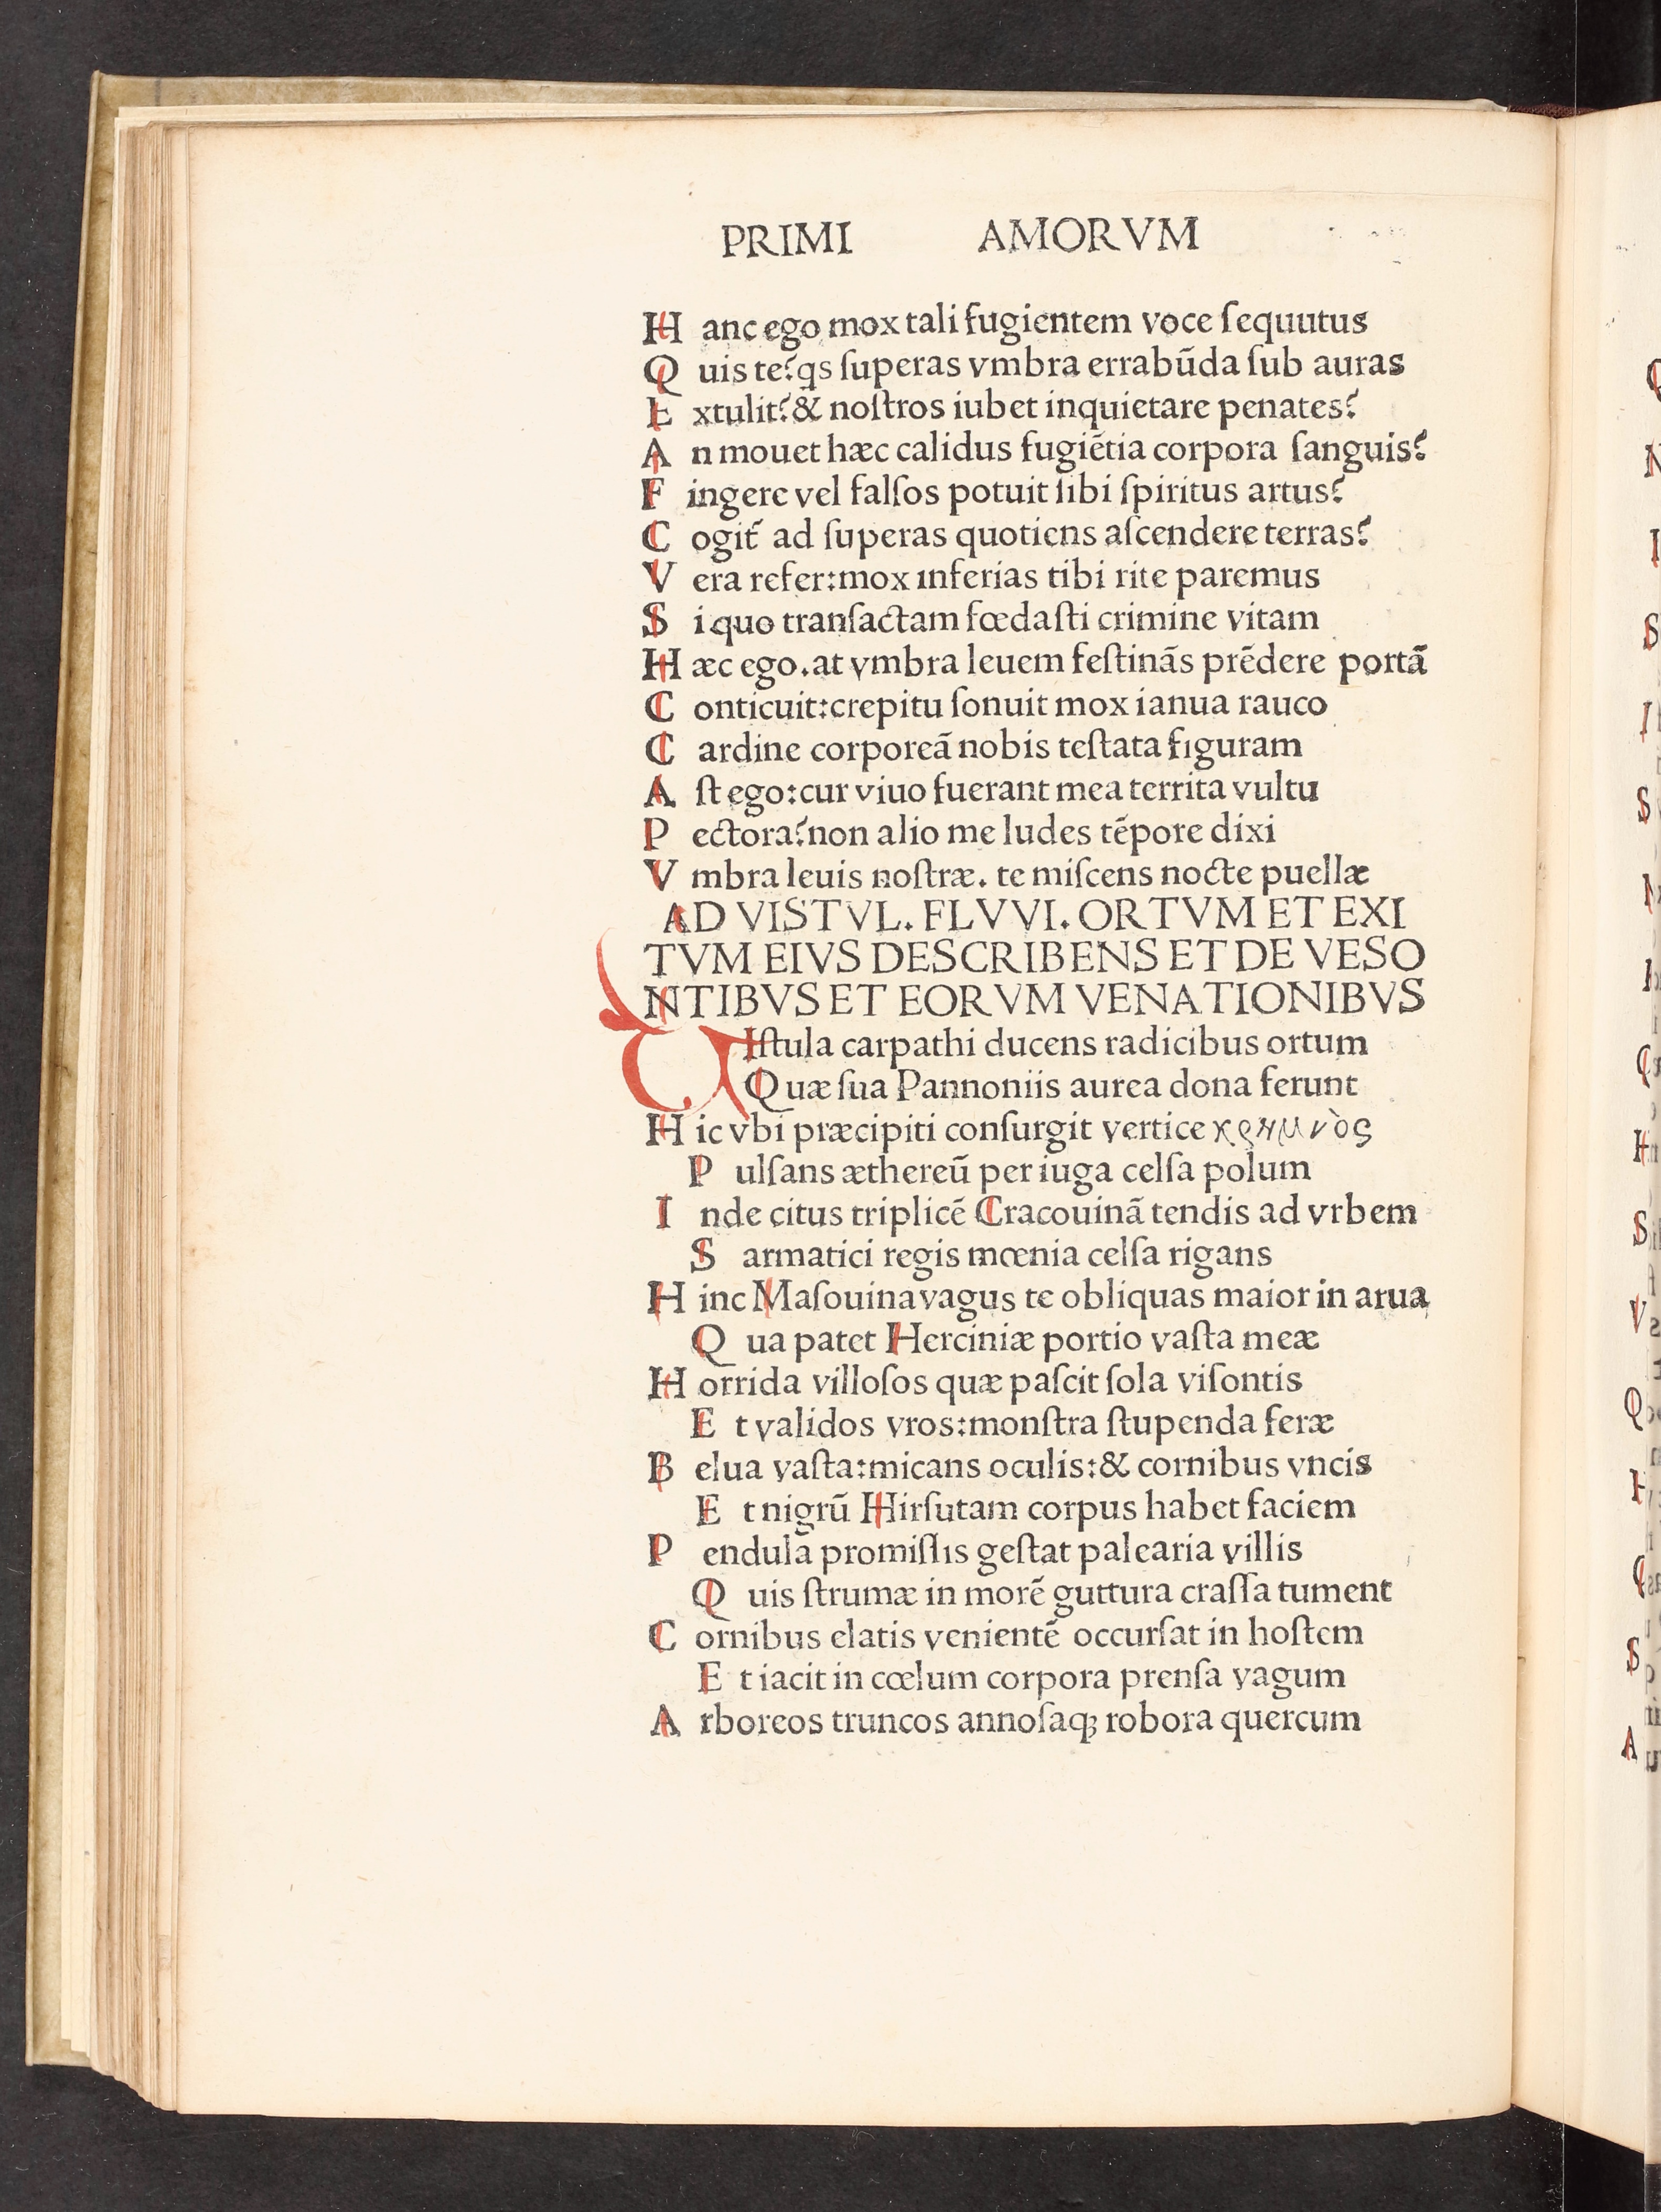 PRIMI AMORVM
H anc ego mox tali fugientem voce ſequutus
Q uis te? qs ſuperas vmbra errabūda ſub auras
E xtulit? & noſtros iubet inquietare penates?
A n mouet hæc calidus fugiētia corpora ſanguis?
F ingere vel falſos potuit ſibi ſpiritus artus?
C ogit̃ ad ſuperas quotiens aſcendere terras?
V era refer:mox inferias tibi rite paremus
S i quo tranſactam fœdaſti crimine vitam
H æc ego.at vmbra leuem feſtinās prēdere portā
C onticuit:crepitu ſonuit mox ianua rauco
C ardine corporeā nobis teſtata figuram
A ſt ego:cur viuo fuerant mea territa vultu
P ectora?non alio me ludes tēpore dixi
V mbra leuis noſtræ. te miſcens nocte puellæ
AD VISTVL. FLVVI. ORTVM ET EXI
TVM EIVS DESCRIBENS ET DE VESO
NTIBVS ET EORVM VENATIONIBVS
VIſtula carpathi ducens radicibus ortum
Quæ ſua Pannoniis aurea dona ferunt
H ic vbi præcipiti conſurgit vertice κρημνὸς
P ulſans æthereū per iuga celſa polum
I nde citus triplicē Cracouinā tendis ad vrbem
S armatici regis mœnia celſa rigans
H inc Maſouina vagus te obliquas maior in arua
Q ua patet Herciniæ portio vaſta meæ
H orrida villoſos quæ paſcit ſola viſontis
E t validos vros:monſtra ſtupenda feræ
B elua vaſta:micans oculis:& cornibus vncis
E t nigrū Hirſutam corpus habet faciem
P endula promiſſis geſtat palearia villis
Q uis ſtrumæ in morē guttura craſſa tument
C ornibus elatis venientē occurſat in hoſtem
E t iacit in cœlum corpora prenſa vagum
A rboreos truncos annoſaqꝫ robora quercum